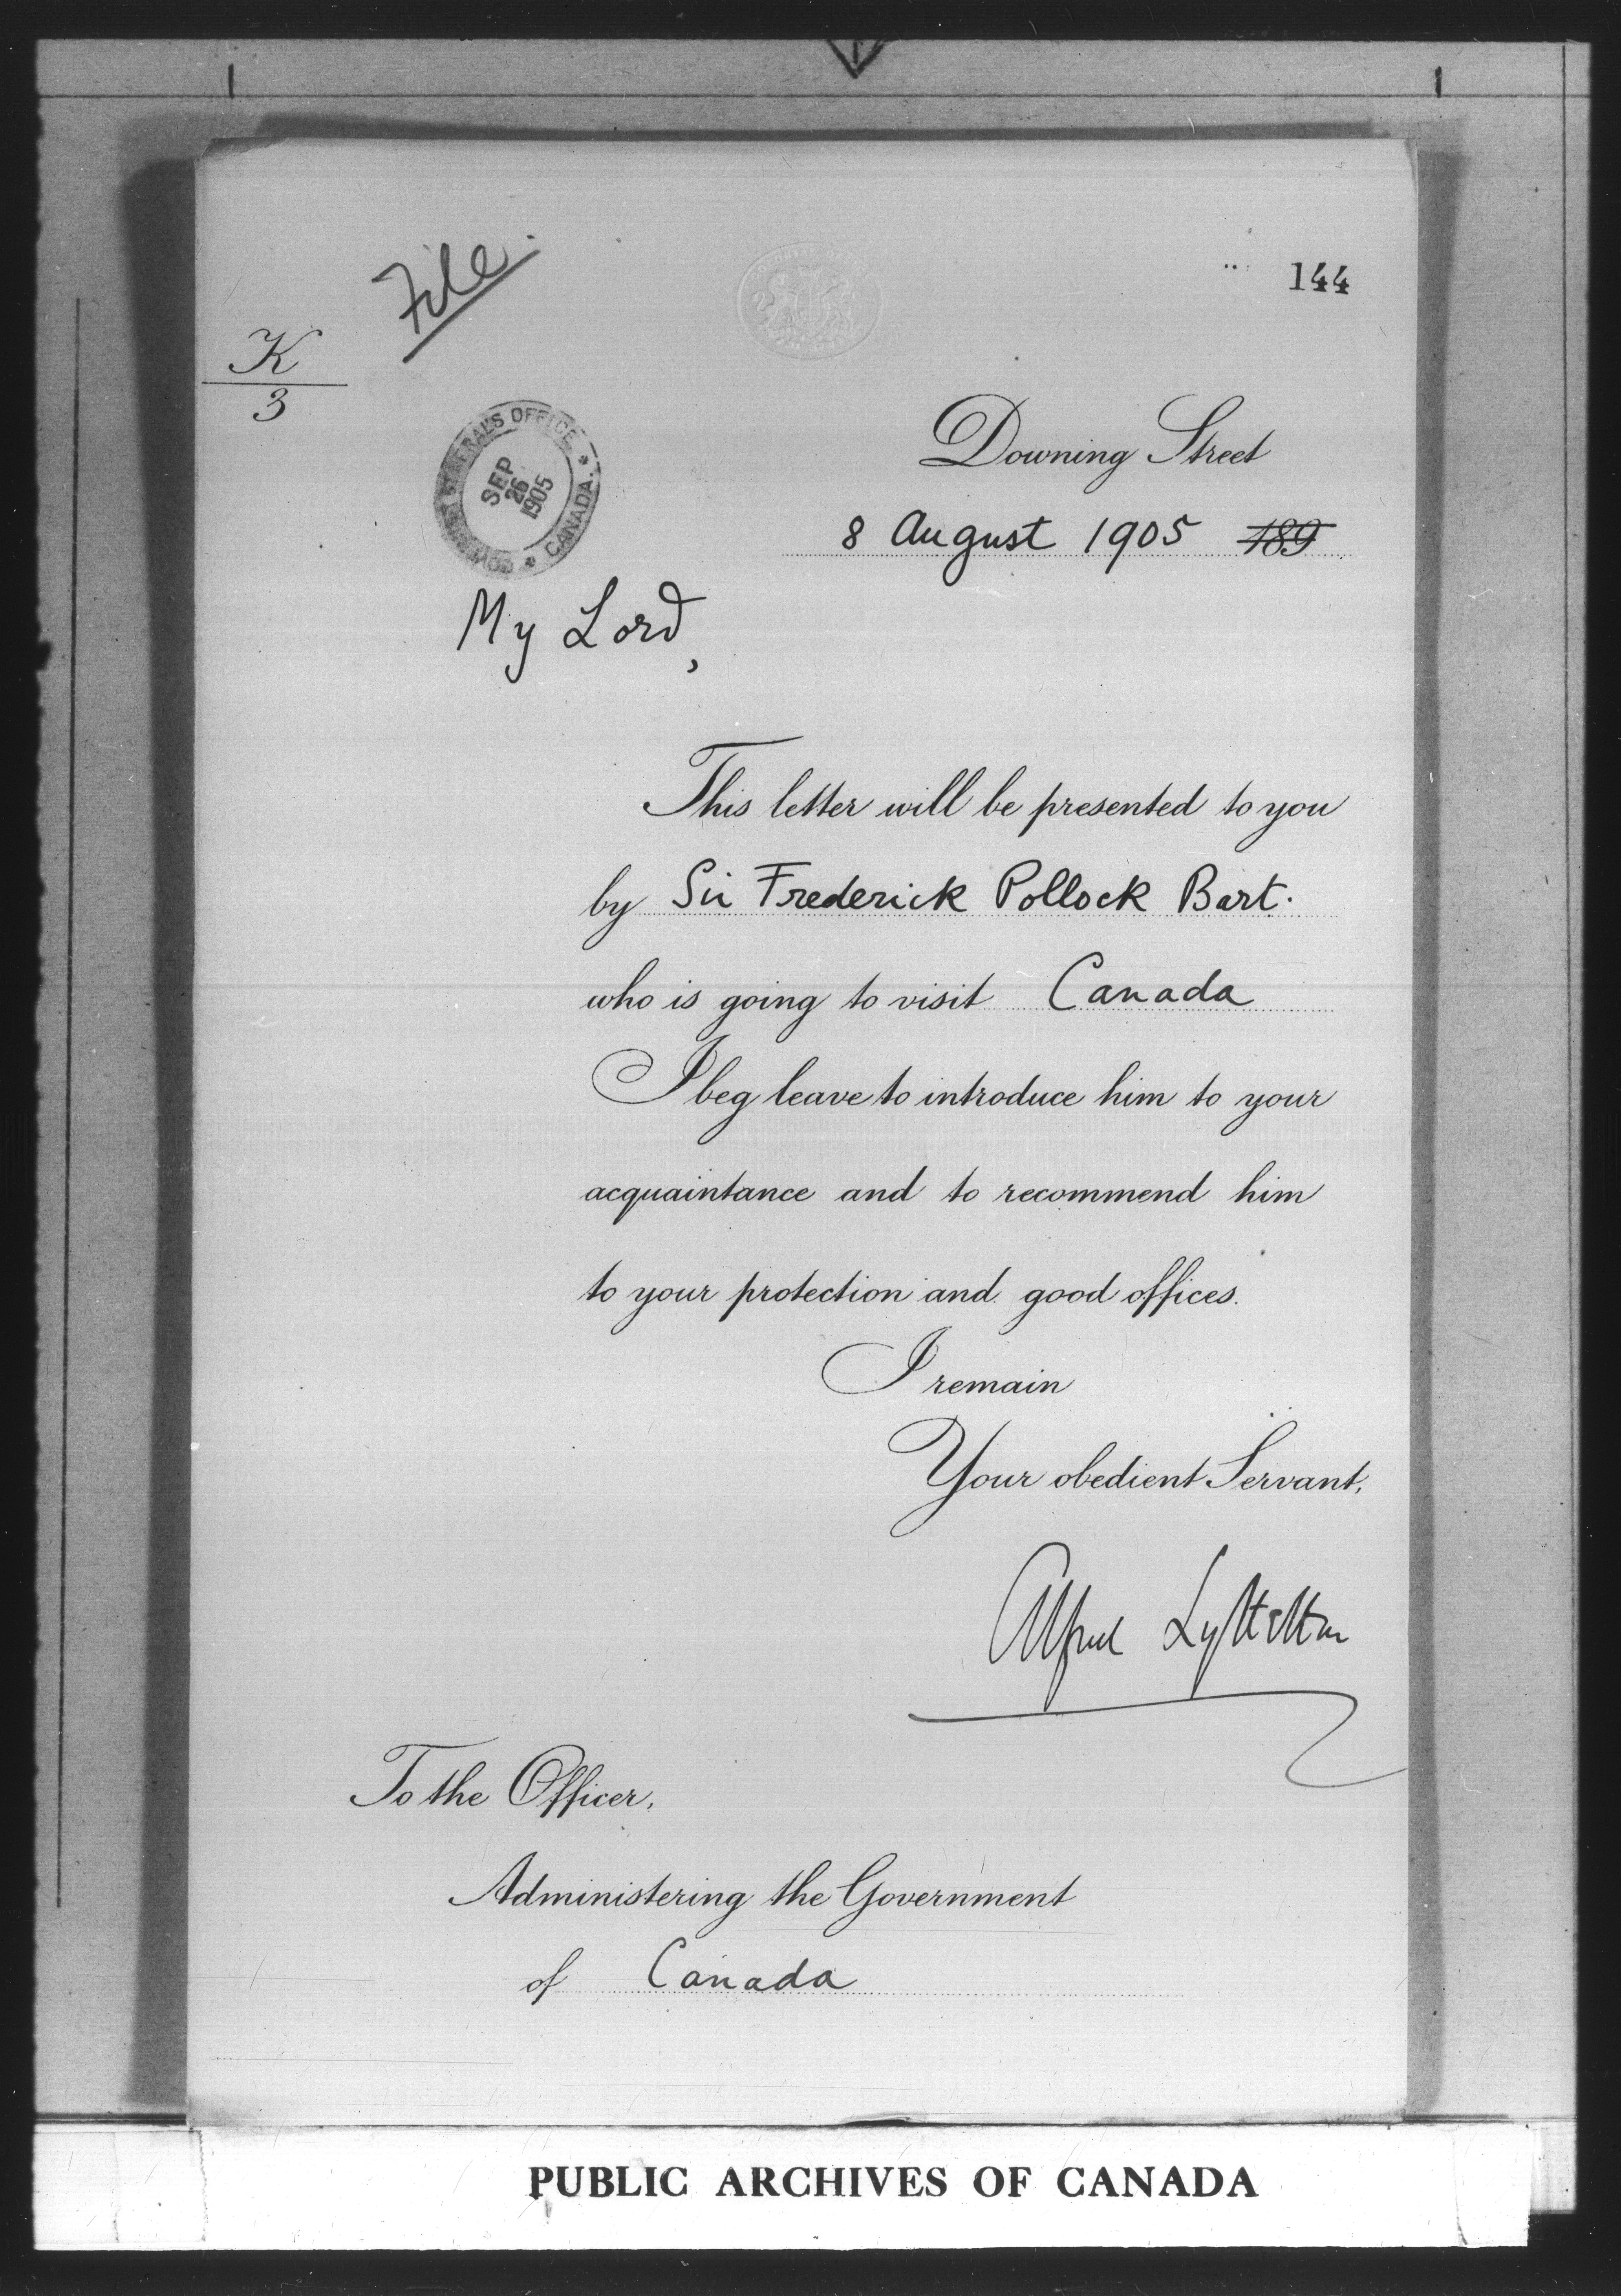 File.
144
K
3
GOVERNOR GENERAL'S OFFICE * CANADA. *
SEP
26
1905
Downing Street
8 August 1905 189
My Lord,
This letter will be presented to you
by Sir Frederick Pollock Bart.
who is going to visit Canada
I beg leave to introduce him to your
acquaintance and to recommend him
to your protection and good offices.
I remain
Your obedient Servant,
Alfred Lyttelton
To the Officer,
Administering the Government
of Canada
PUBLIC ARCHIVES OF CANADA